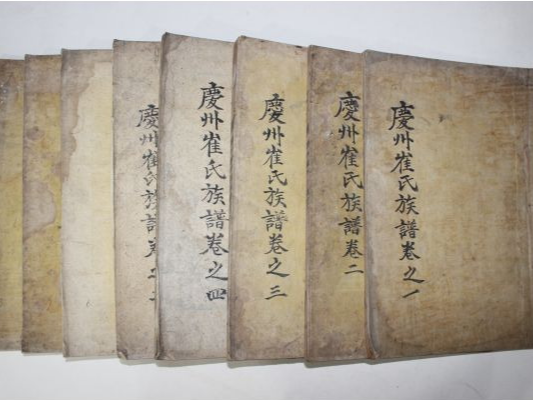 慶州崔氏族譜卷之一
慶州崔氏族譜卷二
慶州崔氏族譜卷之三
慶州崔氏族譜卷之四
慶州崔氏族譜卷之